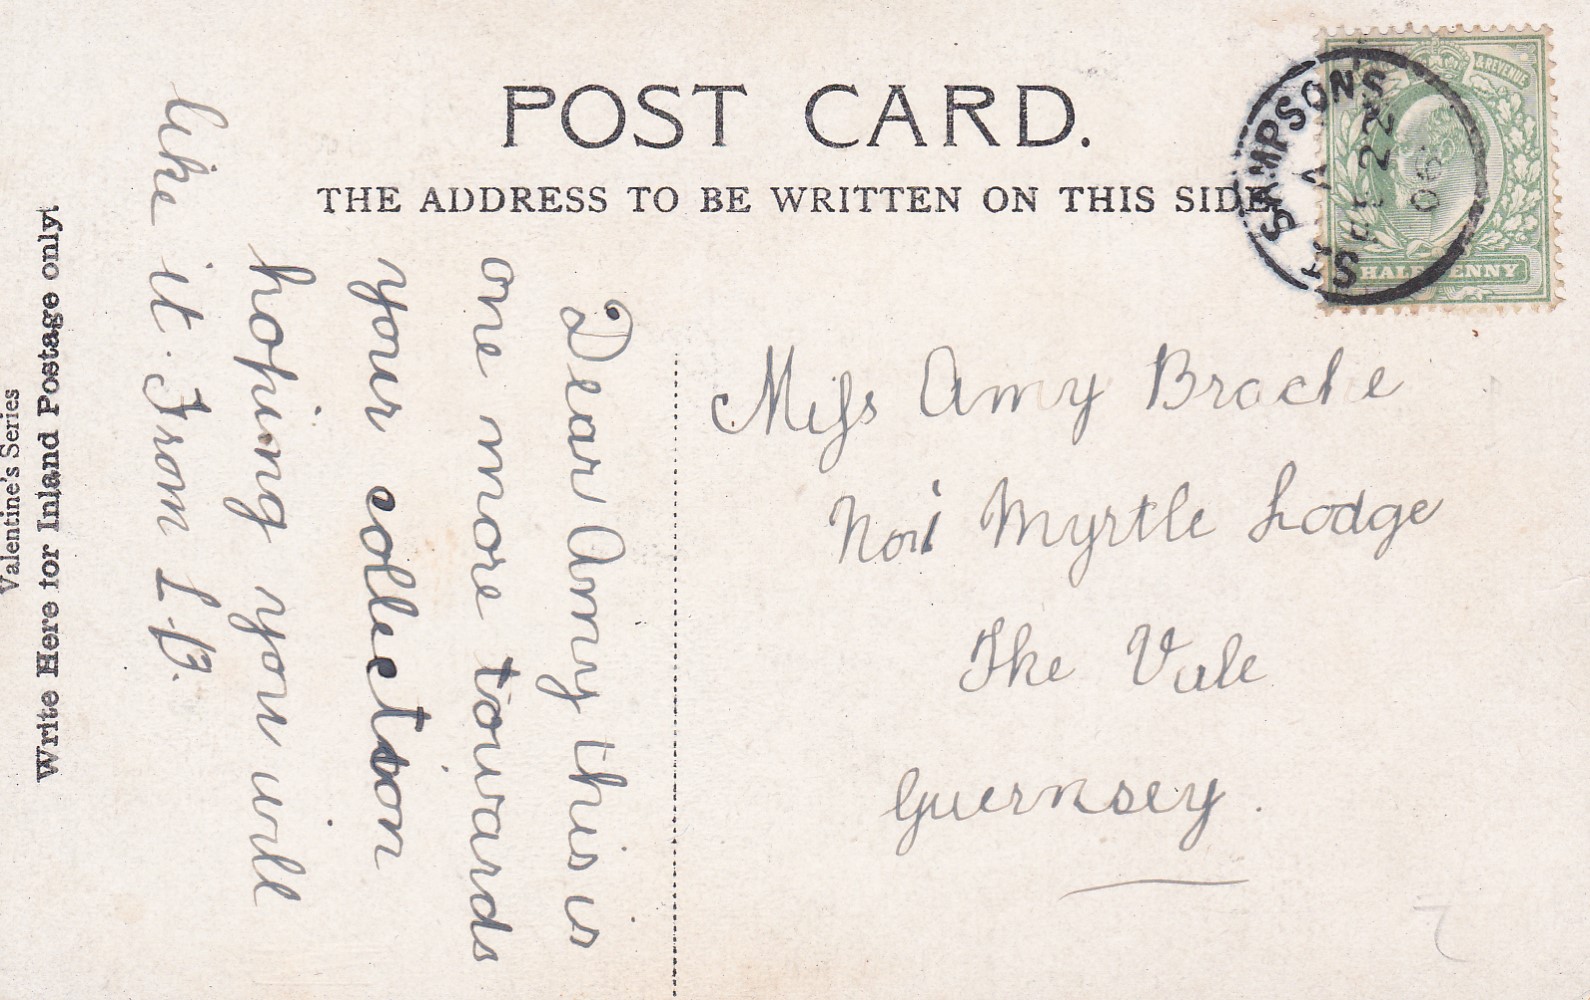 POST CARD.
THE ADDRESS TO BE WRITTEN ON THIS SIDE
Valentine's Series
Write Here for Inland Postage only.
Dear Amy this is
one more towards
your collectson
hoping you will
like it. From L. B.
Miss Amy Brache
Myrtle Lodge
The Vale
Guernsey.
ST SAMPSON'S
A
22
06
& REVENUE
HALFPENNY